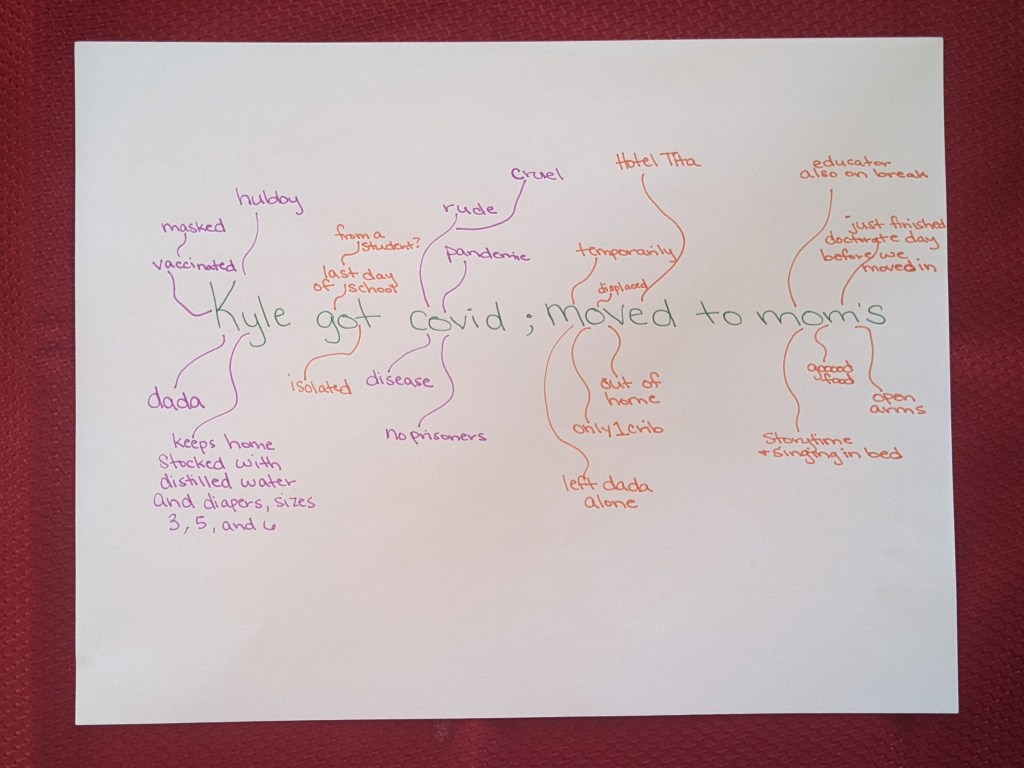 cruel
Hotel Tita
educator
also on break
hubby
masked
rude
just finished
doctorate day
before we
moved in
from a
student?
vaccinated
pandemic
temporarily
last day
of school
displaced
Kyle got covid; moved to mom's
isolated
disease
out of
home
goood
food
dada
open
arms
no prisoners
only 1 crib
keeps home
stocked with
distilled water
and diapers, sizes
3, 5, and 6
storytime
+ singing in bed
left dada
alone